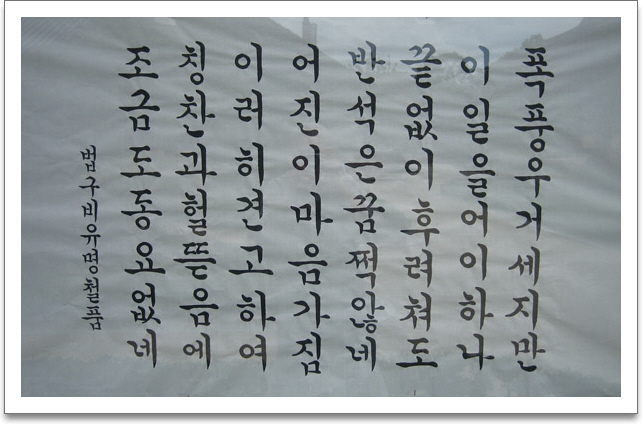 폭풍우거세지만
이일을어이하나
끝없이후려쳐도
반석은꿈쩍않네
어진이마음가짐
이러히견고하여
칭찬과헐뜯음에
조금도동요없네
법구비유명철품